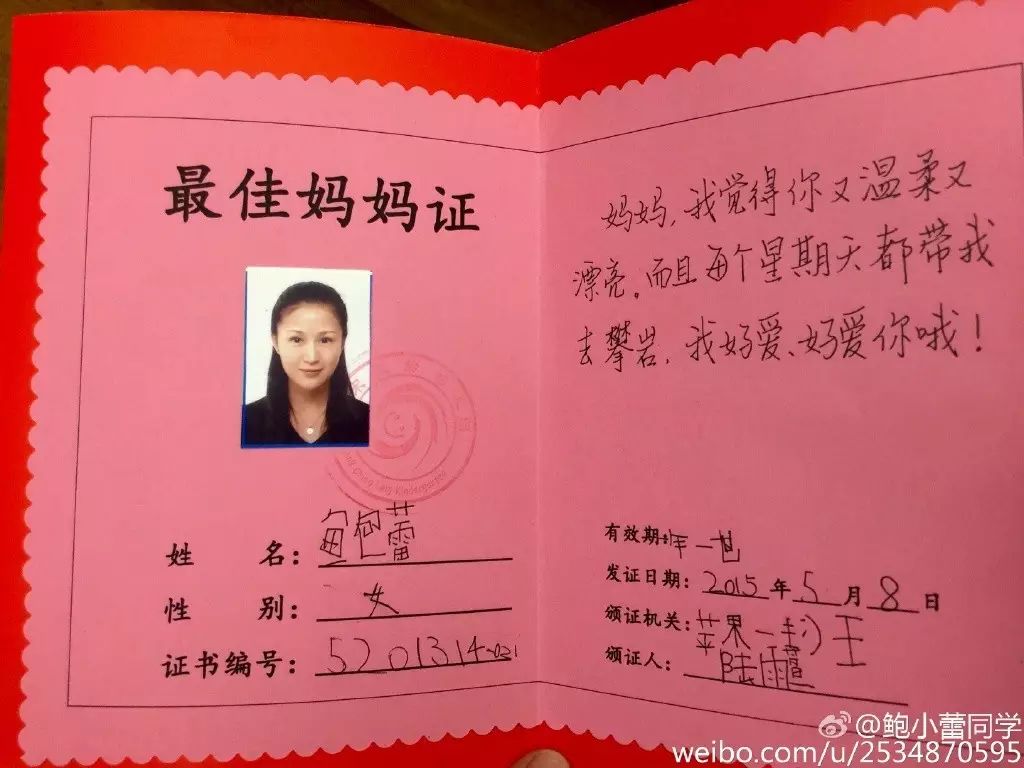 最佳妈妈证
姓 名：鲍蕾
性 别：女
证书编号：5201314-021
妈妈，我觉得你又温柔又
漂亮。而且每个星期天都带我
去攀岩，我好爱、好爱你哦！
有效期
发证日期：2015年5月8日
颁证机关：苹果一
颁证人：陆
Kindergarten
@鲍小蕾同学
weibo.com/u/2534870595